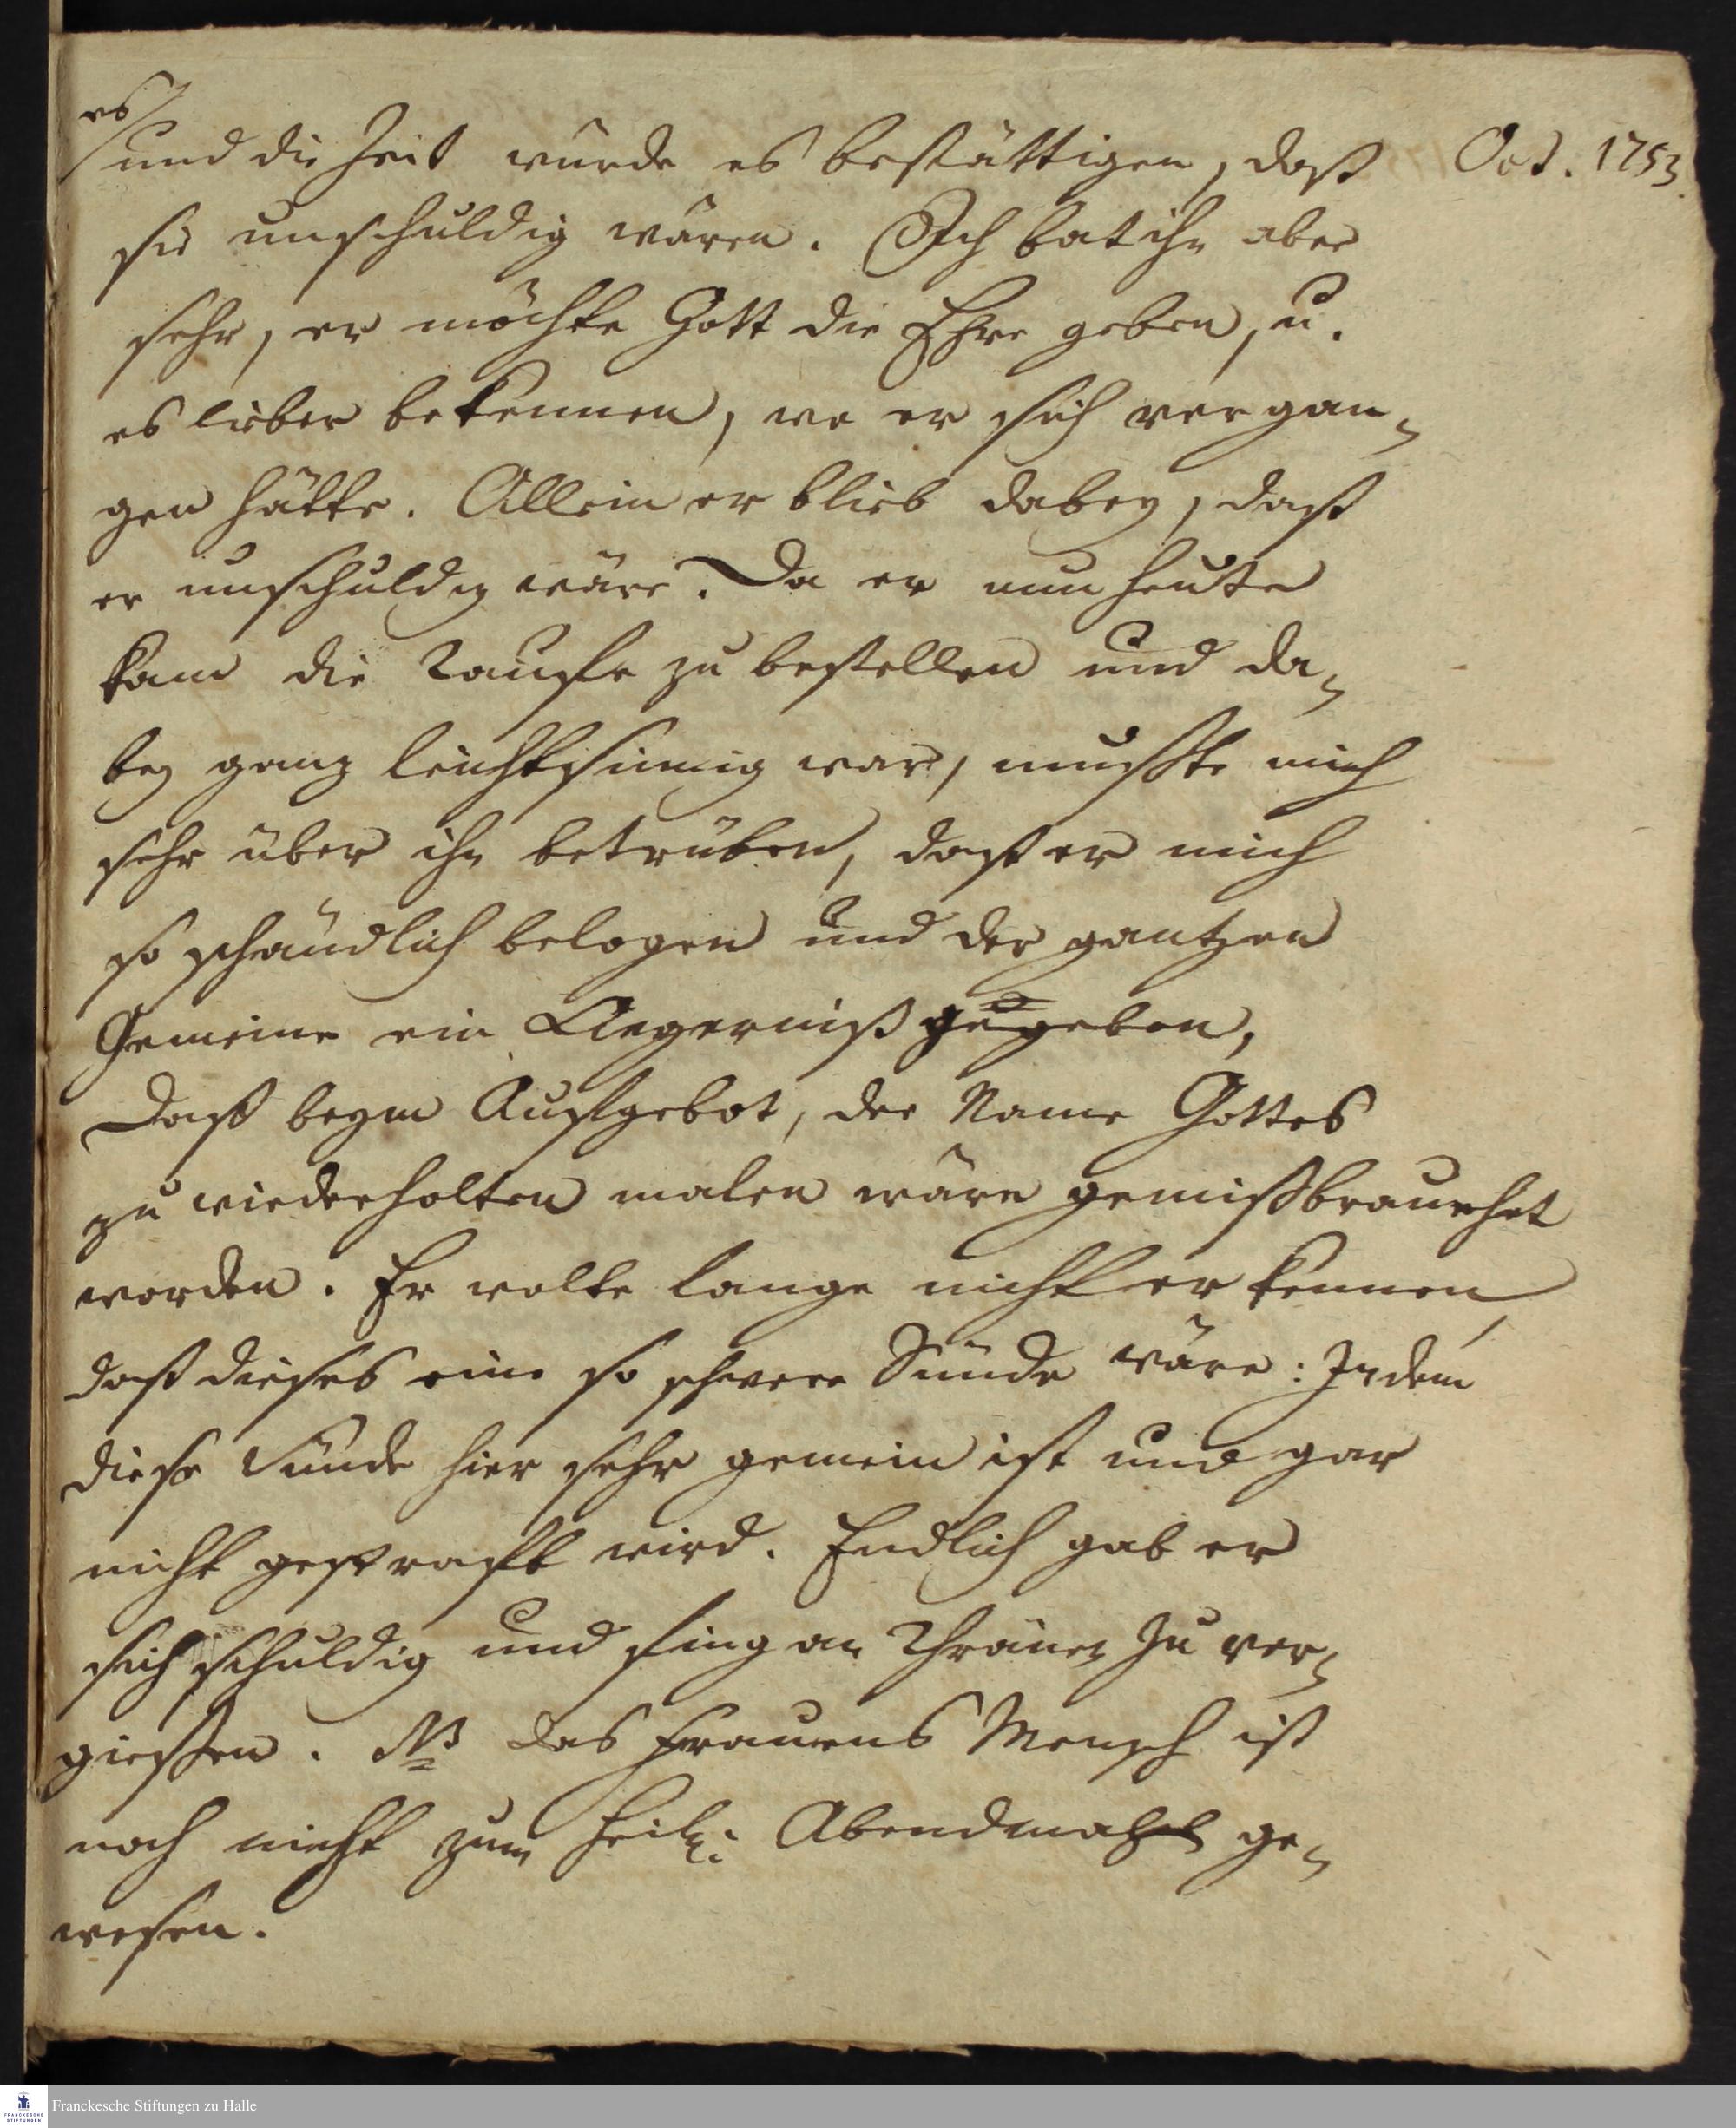 es
und die Zeit würde es bestättigen, daß
Oct. 1753.
sie unschuldig wären. Ich bat ihn aber
sehr, er möchte Gott die Ehre geben, u.
es lieber bekennen, wo er sich vergan-
gen hätte. Allein er blieb dabey, daß
er unschuldig wäre. Da er nun heute
kam die Tauffe zu bestellen und da-
bey ganz leichtsinnig war, mußte mich
sehr über ihn betrüben, daß er mich
so schändlich belogen und der gantzen
Gemeine ein Aergerniß gegeben,
Daß beym Aufgebot, der Name Gottes
zu wiederholten malen wäre gemißbrauchet
worden. Er wolte lange nicht erkennen,
daß dieses eine so schwere Sünde wäre: Indem
diese Sünde hier sehr gemein ist und gar
nicht gestraft wird. Endlich gab er
sich schuldig und fing an Thränen zu ver-
giessen. NB das Frauens Mensch ist
noch nicht zum heil: Abendmahl ge-
wesen.
Franckesche Stiftungen zu Halle
FRANCKESCHE
STIFTUNGEN